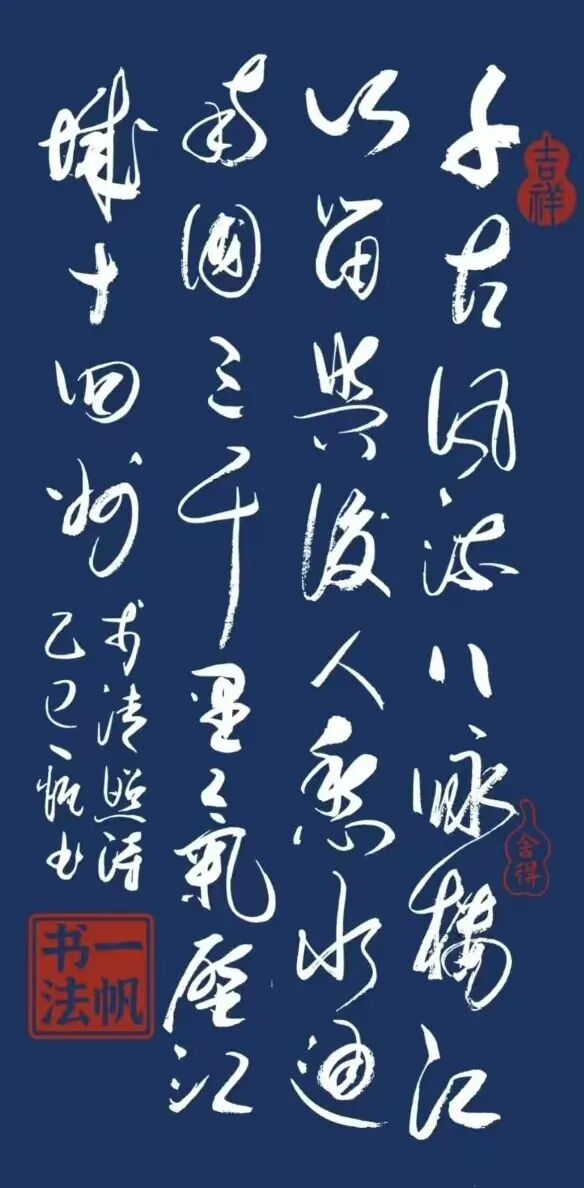 吉祥
千古风流八咏樓江
舍得
山留與後人愁水通
南國三千里氣壓江
城十四州
李清照詩
乙巳一帆书
一帆
书法